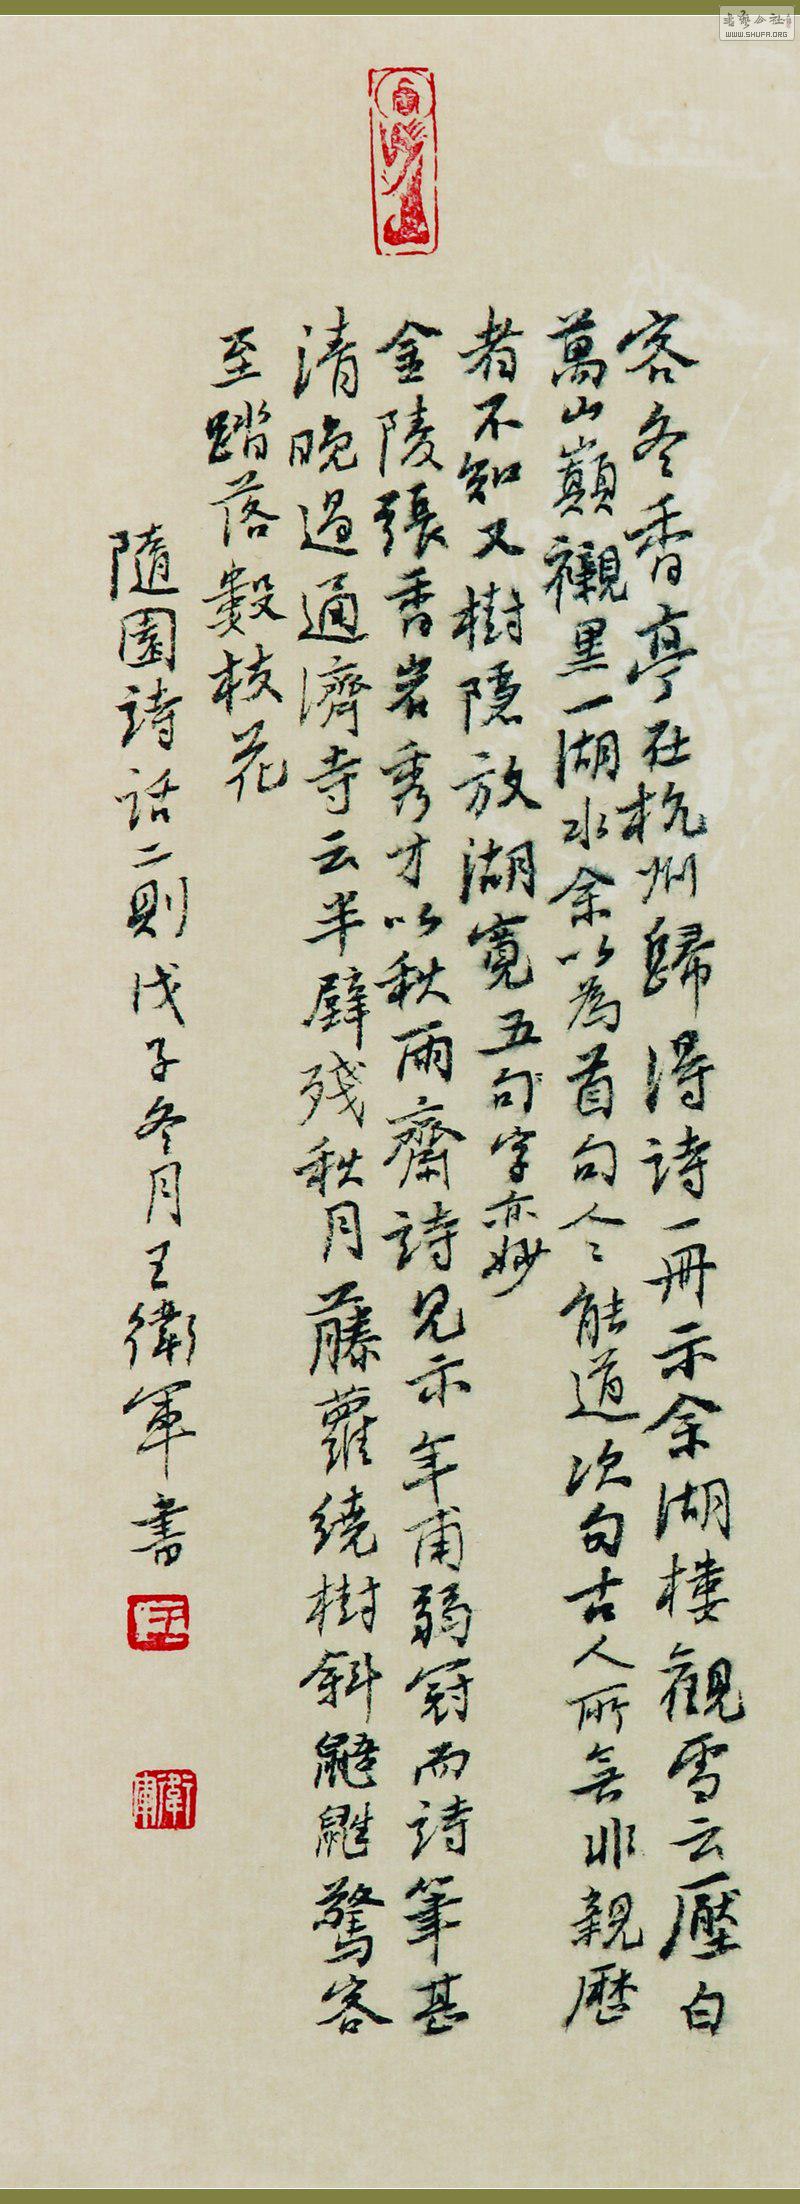 客冬香亭在杭州歸得詩一冊示余湖樓觀雪云壓白
萬山巔襯黑一湖水余以為首句人能道次句古人所無非親歷
者不知又樹隱放湖寬五句字亦妙
金陵張香岩秀才以秋雨齋詩見示年甫弱冠而詩筆甚
清晚過通濟寺云半壁殘秋月藤蘿繞樹斜鼯鼪驚客
至踏落數枝花
隨園詩話二則戊子冬月王衛軍書
王
衛軍
書藝公社
WWW.SHUFA.ORG